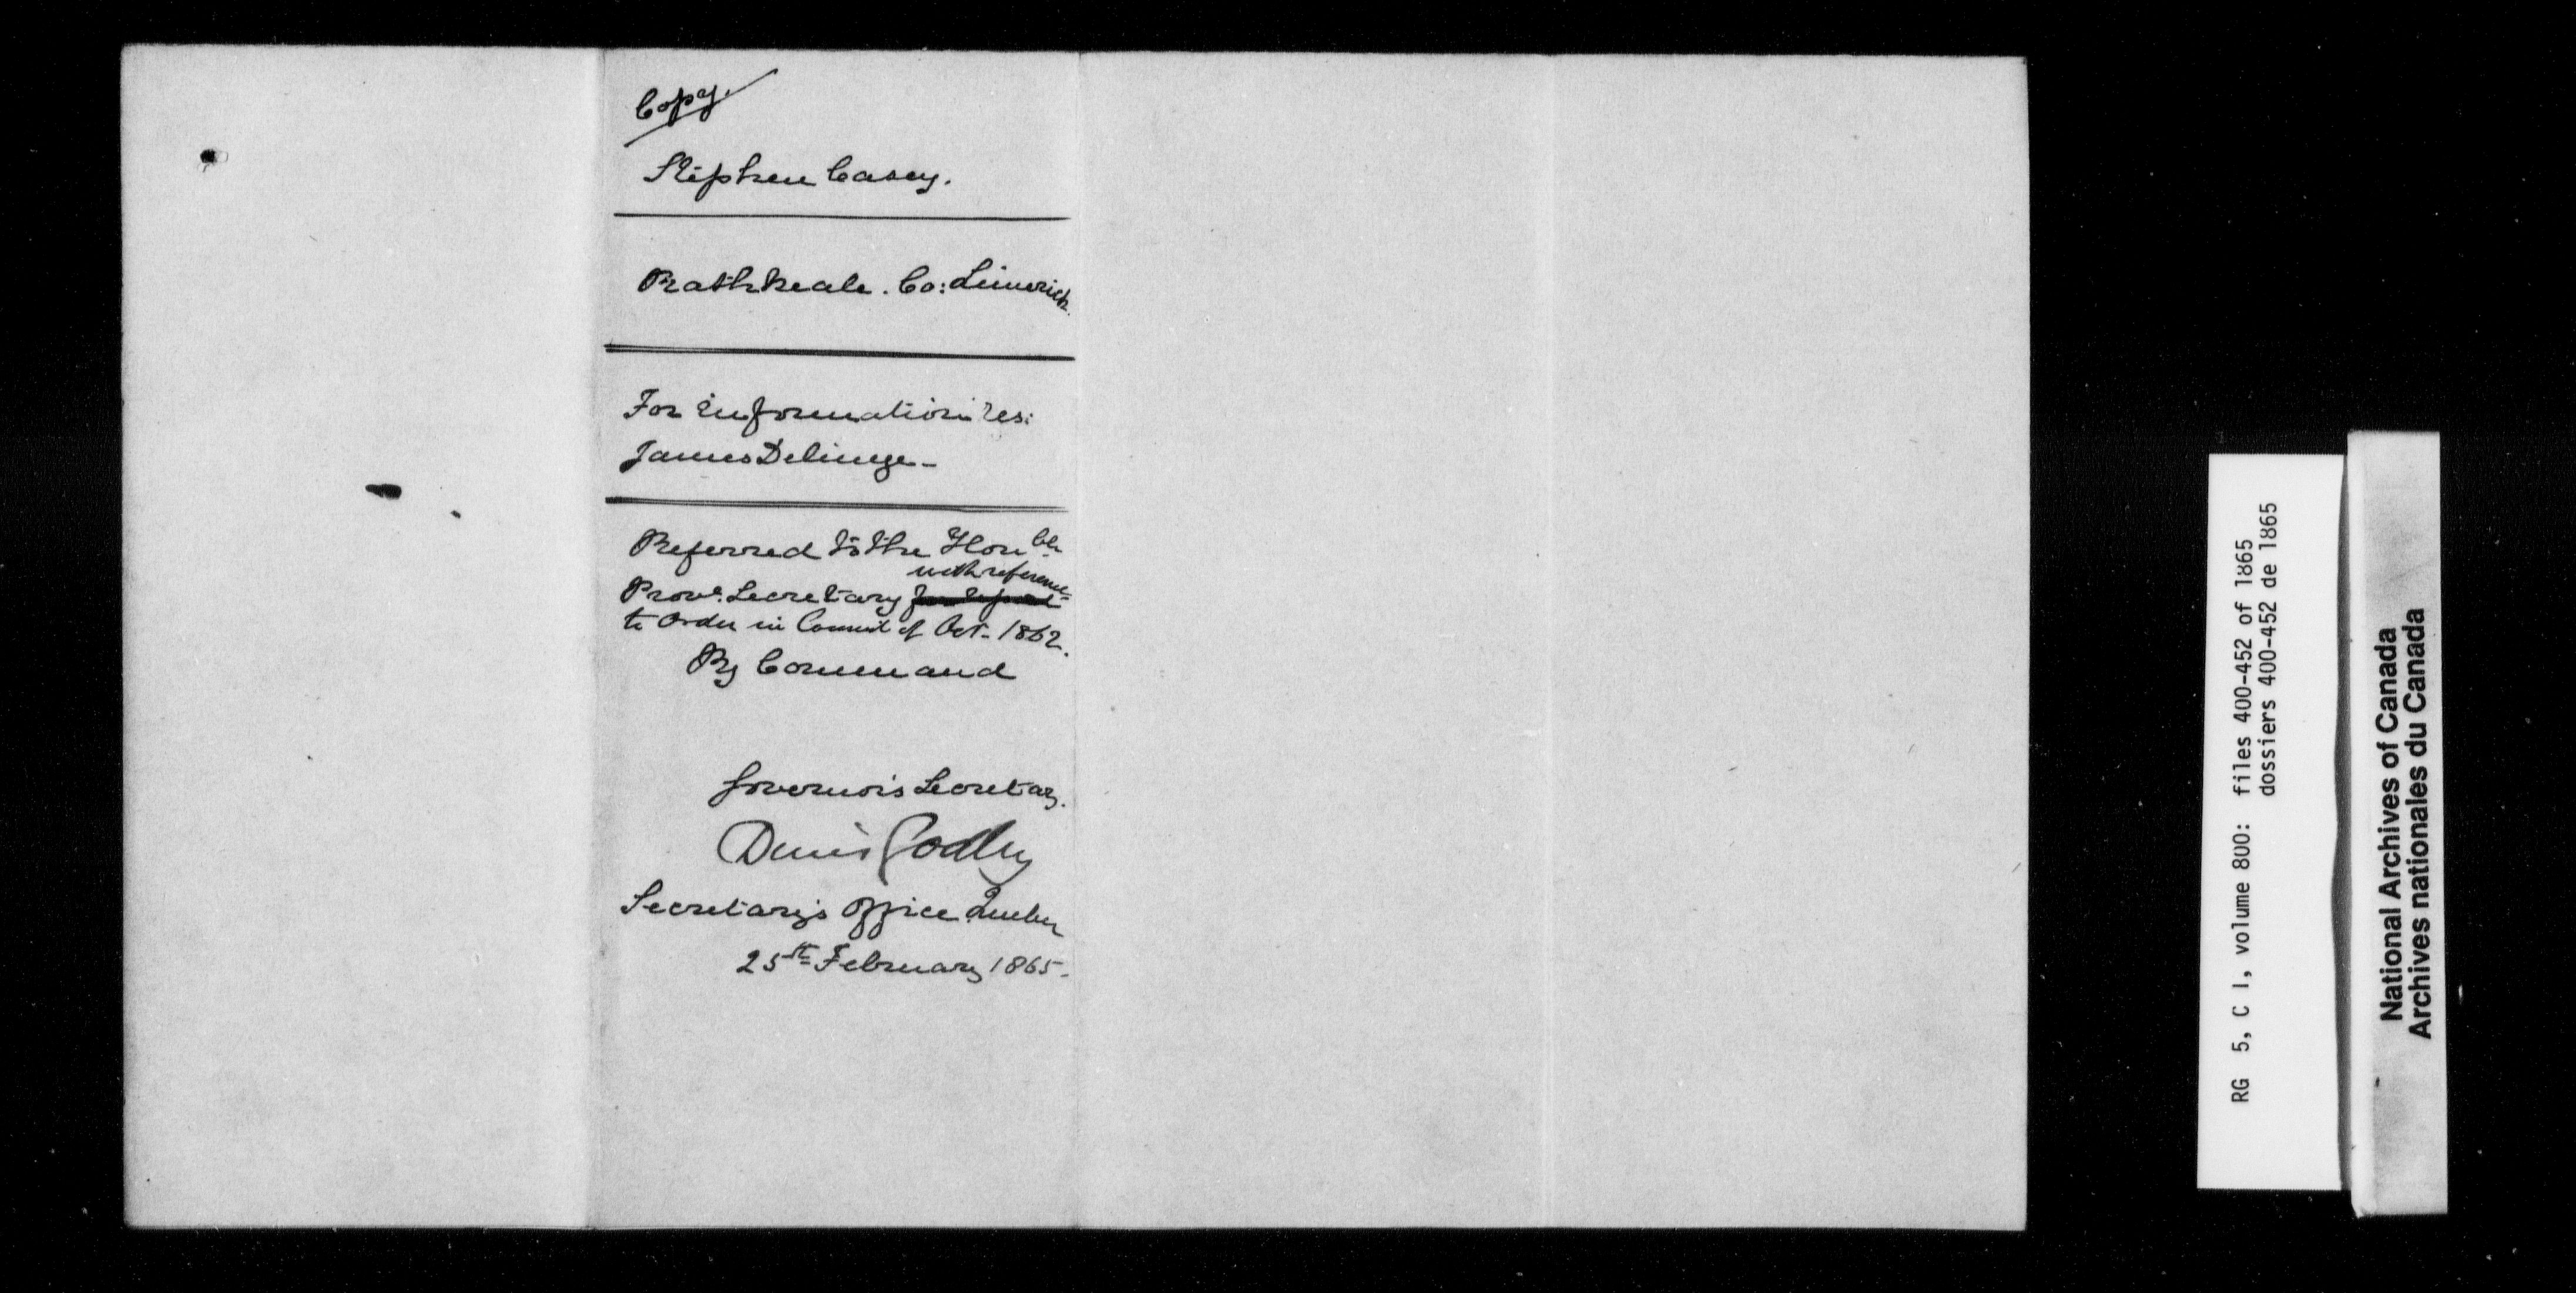 Copy.
Stephen Casey.
Rathkeale. Co: Limerick.
For information res:
James Delmege -
Referred to the Honble
with reference
Provl. Secretary for report
to Order in Council of Oct. 1862.
By Command
Governor's Secretary.
Denis Godley
Secretary's Office Quebec
25th February 1865.
RG 5, C 1, volume 800: files 400-452 of 1865
dossiers 400-452 de 1865
National Archives of Canada
Archives nationales du Canada